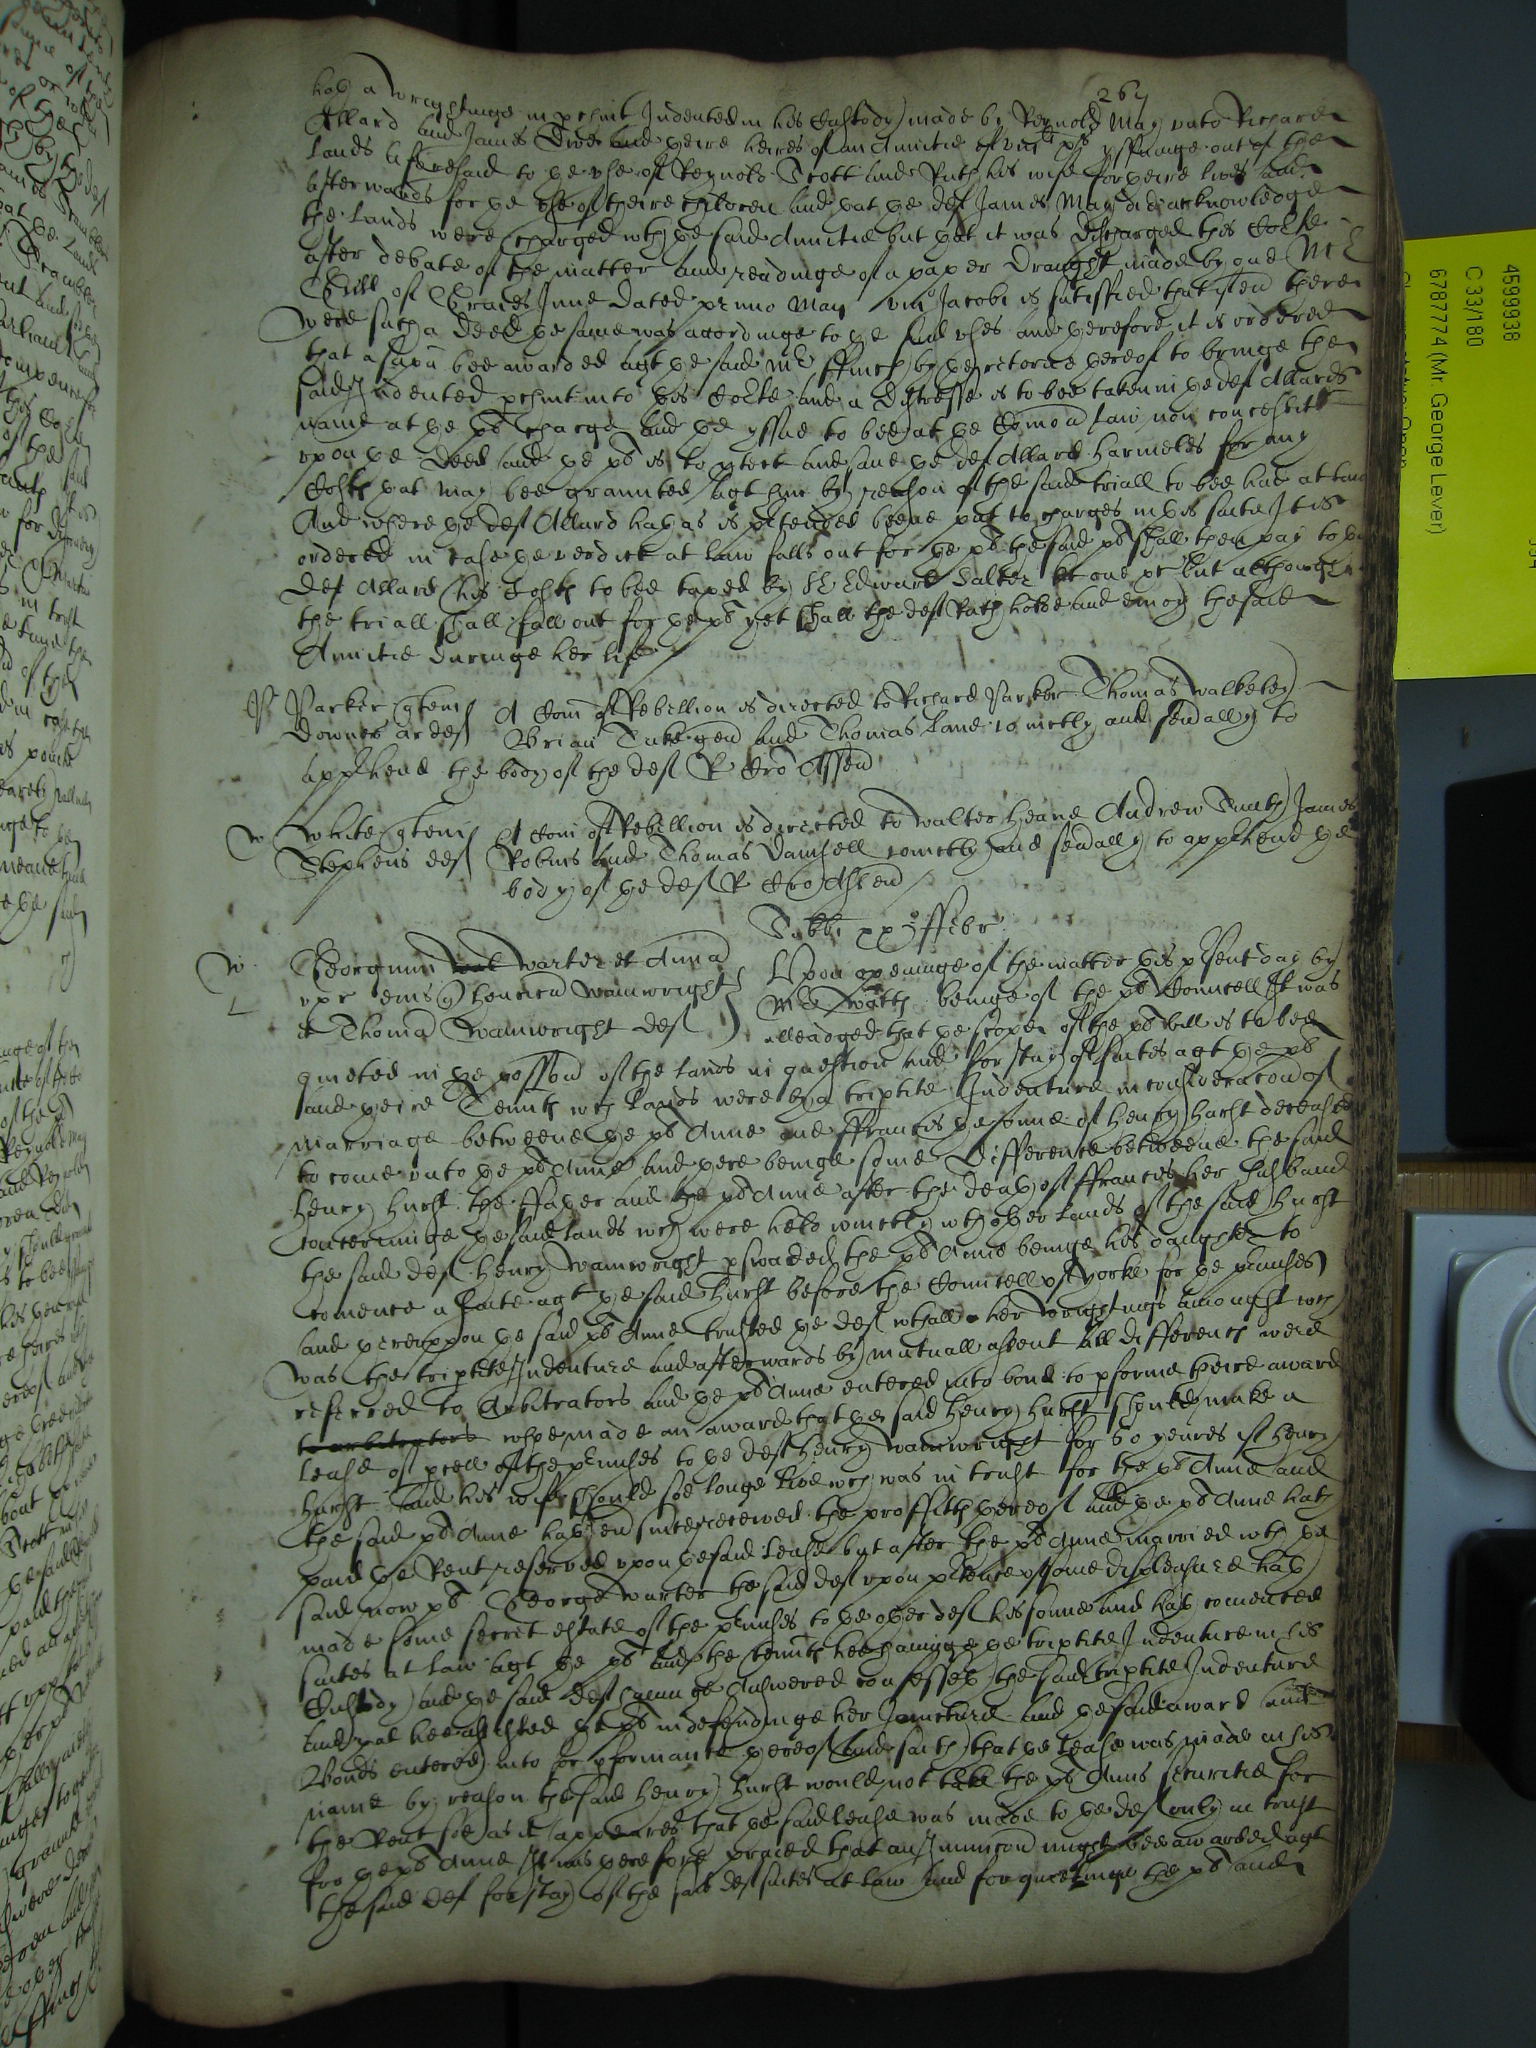 267
hath a wrightinge in pchmt Indented in his Custody made by Reynold May vnto Richard
Allard and James Dive and theire heires of an Annitie of viijli p an yssuinge out of the
lands aforesaid to the vse of Reynold Scott and Ruth his wife for theire lives and
afterwards for the vse of theire children and that the def James May did acknowledge
the lands were charged wth the said Annitie but that it was discharged this Corte
after debate of the matter and readinge of a paper draught made by one Mr
Gill of Graies Inne dated primo May Jacobi is satisfied that if there
were such a deed the same was accordinge to the said vses and therefore it is ordered
that a supa bee awarded agt the said Mr ffinch by the retorne thereof to bringe the
said Indented pchmt into this Corte and a distresse is to bee taken in the def Allards
name at the plt charge and the yssue to bee at the Comon law non concessit
vpon the deed and the plt is to ptect and save the def Allard harmeles for any
Costs that may bee graunted agt him by reason of the said triall to bee had at law
And where the def Allard hath as is ptended beene put to charges in this suite It is
ordered in case the verdict at law falls out for the plt the said plt shall then pay to the
def Allard his Costs to bee taxed by Sr Edward Salter kt one &c But althoughe
the triall shall fall out for the plt yet shall the def Ruth hold and enioy the said
Annitie duringe her life
P Parker quer A Com of Rebellion is directed to Richard Parker Thomas Walkeley
Downes ar def Brian Tuke gen and Thomas Lane ioinctly and seually to
apphend the body of the def R Cro Assen
W White quer A Com of Rebellion is directed to Walter Heane Andrew Smith James
Stephens def Robins and Thomas Damsell ioinctly and seually to apphend the
body of the def R Cro Assen
Sabbi xxo ffebr
W Georgium Warter et Anna Vpon openinge of the matter this psent day by
vxr eius q Henricu Wainwright Mr Watts beinge of the plt Councell It was
L & Thoma Wainwright def alleadged that the scope of the plt bill is to bee
quieted in the possion of the lands in question and for stay of suites agt the plt
and theire Tennts wch lands were by a triptite Indenture in consideracon of
marriage betweene the plt Anne and ffrancis the sonne of Henry Hurst deceased
to come vnto the plt Anne and there beinge some difference betweene the said
Henry Hurst the ffather and the plt Anne after the death of ffrancis her husband
concerninge the said lands wch were held ioinctly wth other lands of the said Hurst
the said def Henry Wainwright pswaded the plt Anne beinge his daughter to
comence a suite agt the said Hurst before the Councell of Yorke for the pmisses
and therevppon the said plt Anne trusted the def wth all her wrightings amongst wch
was the triptite Indenture and afterwards by mutuall assent all differences were
referred to Arbitrators and the plt Anne entered into bond to pforme theire award
to arbitrators whoe made an award that the said Henry Hurst should make a
lease of pcell of the pmisses to the def Henry Wainwright for 60 yeares if Henry
Hurst and his wife should soe longe live wch was in trust for the plt Anne and
the said plt Anne hath ev since receeved the proffitts thereof and the plt Anne hath
paid the Rent reserved vpon the said lease but after the plt Anne married wth the
said now plt George Warter the said def vpon ptence of some displeasure hath
made some secret estate of the pmisses to the other def his sonne and hath comenced
suites at law agt the plt and the tennts hee havinge the triptite Indenture in his
Custody and the said def havinge Answered confesseth the said triptite Indenture
and that hee assisted the plt in defendinge her Joincture and the said award and
Bonds entered into for pformance thereof and saith that the lease was made in his
name by reason the said Henry Hurst would not take the plt Anns securitie for
the Rent soe as it appeares that the said lease was made to the def only in trust
for the plt Anne It was therefore praied that an Iniuncon might bee awarded agt
the said def for stay of the said def suites at law and for quietinge the plt and
4599938
C 33/180
6787774 (Mr. George Lever)